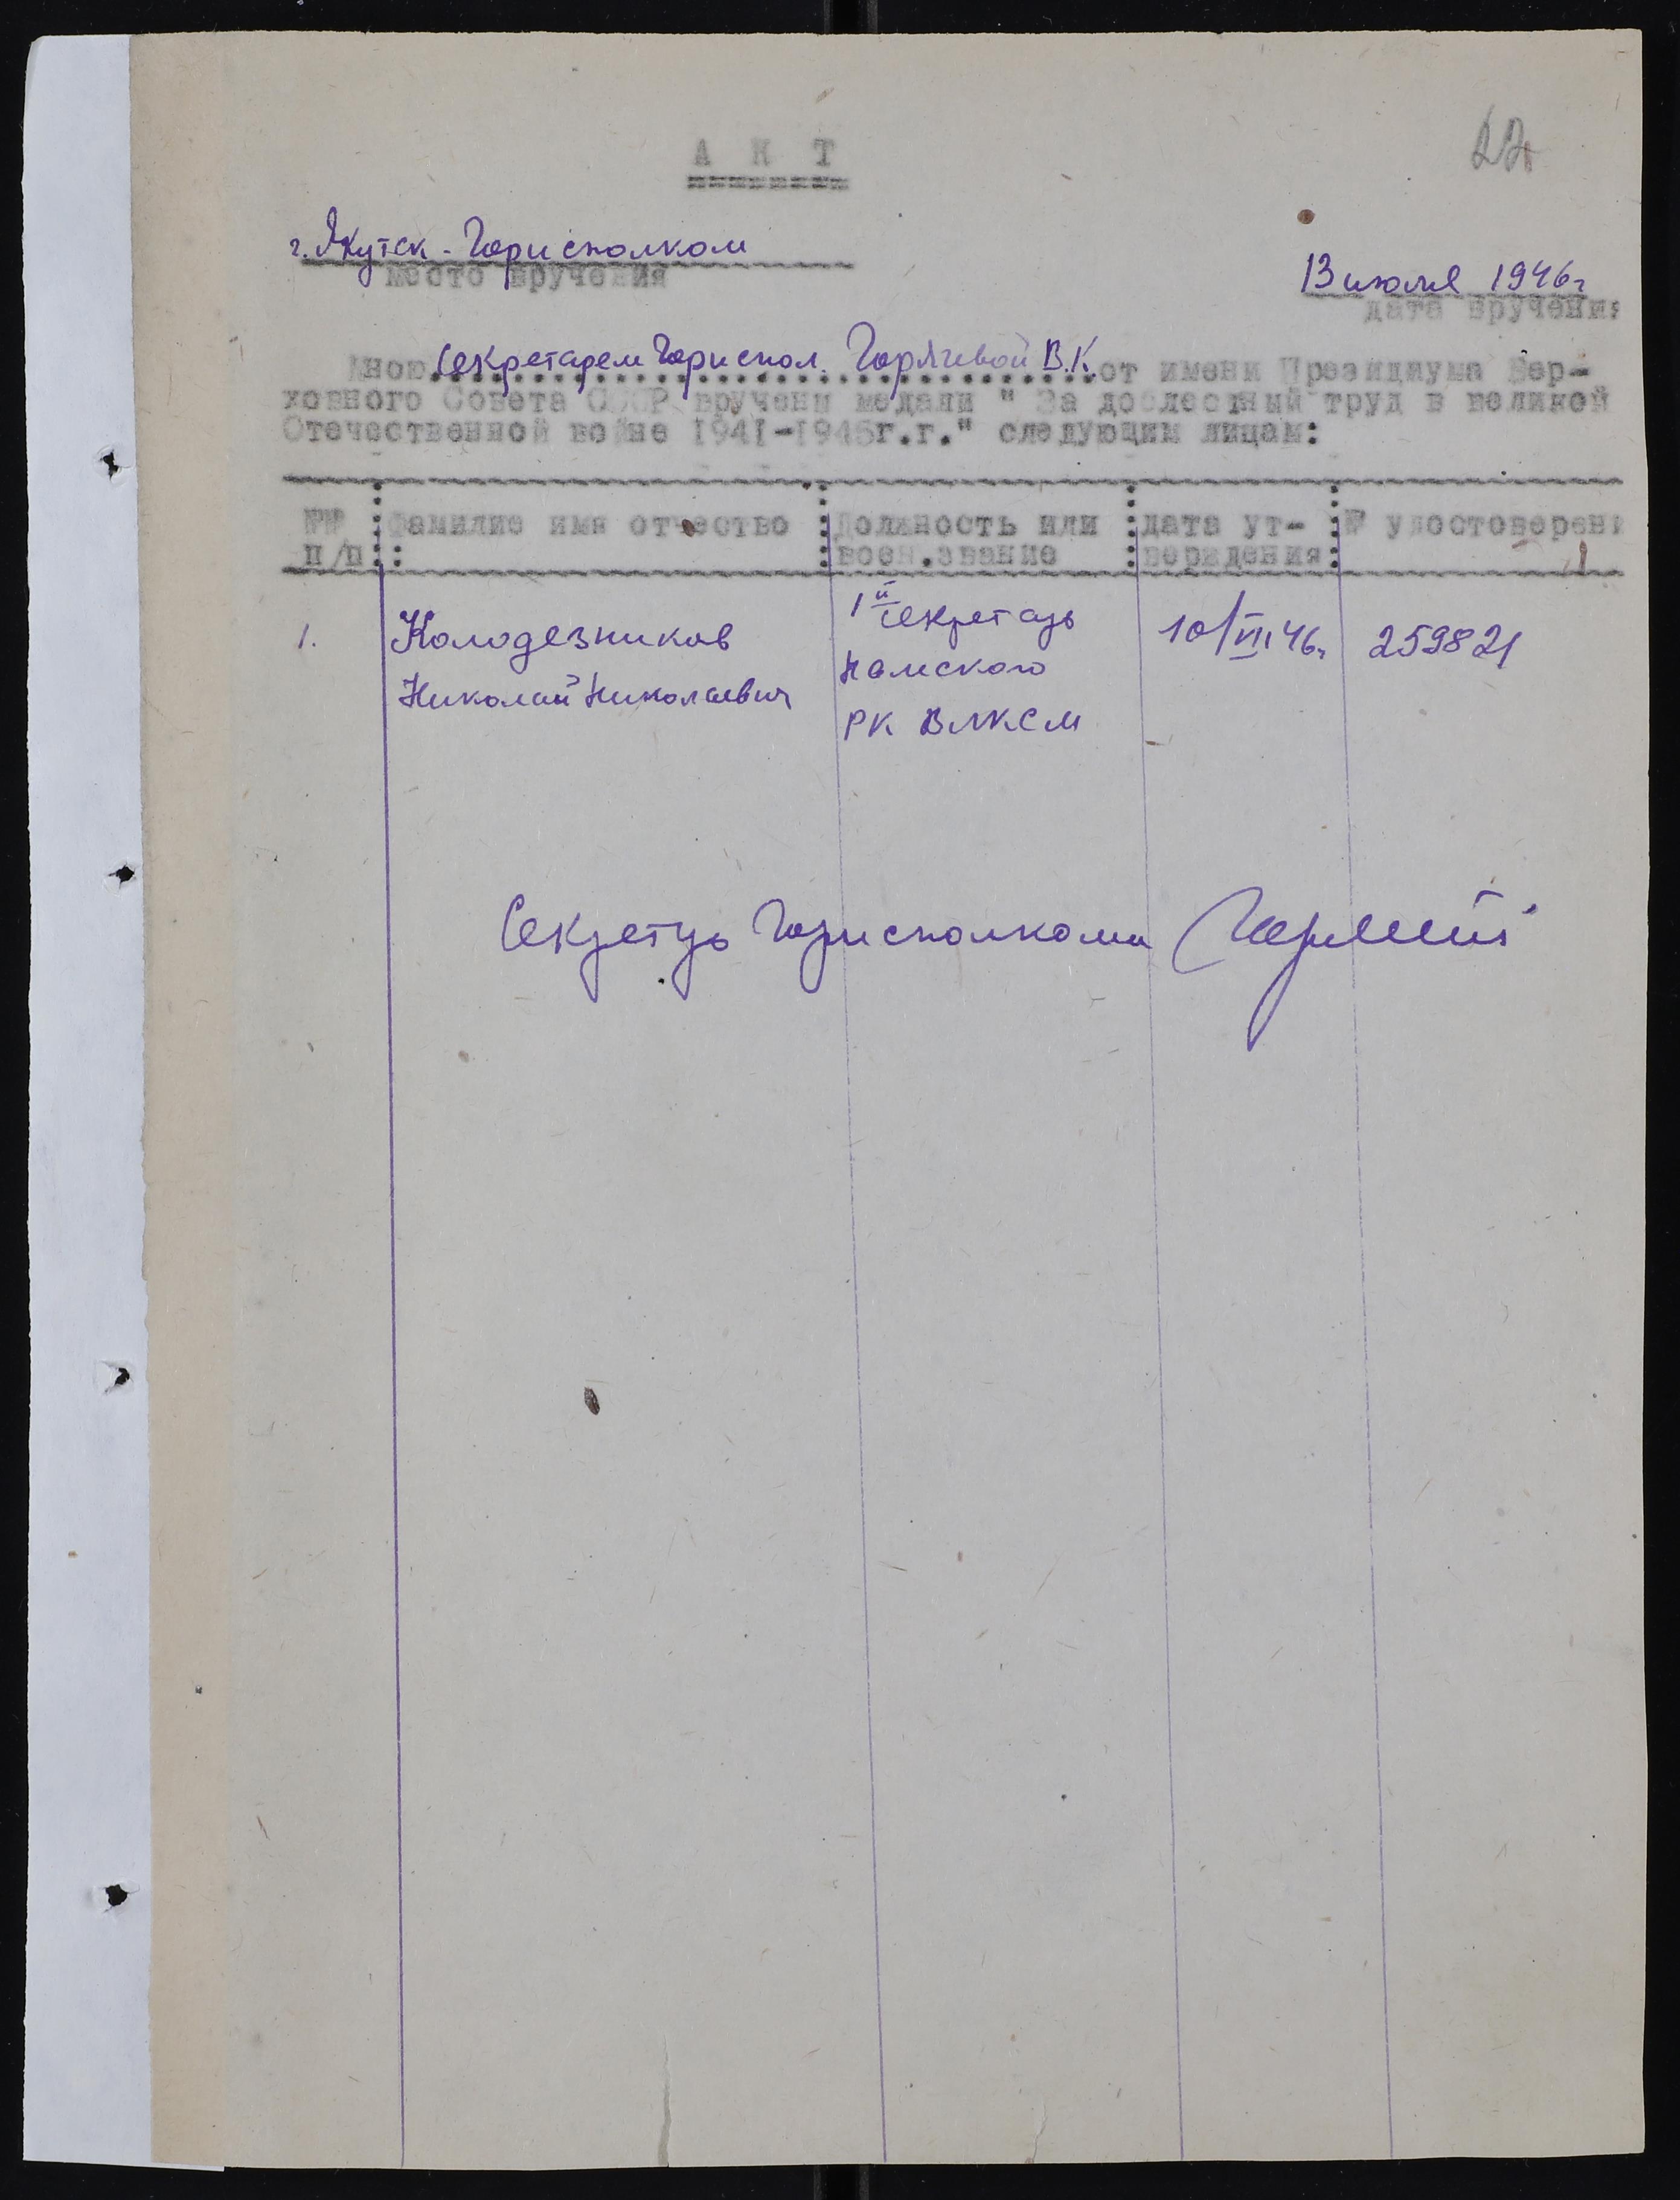 22
А К Т
г. Якутск - Горисполком
место вручения
13 июля 1946 г
дата вручения
Мною секретарем Горислол. Горячевой В.К. от имени Президиума Вер-
ховного Совета СССР вручены медали " За доблестный труд в великой
Отечественной войне 1941-1945г.г." следующим лицам:
№№ фамилие имя отчество Должность или дата ут- № удостоверени
п/п воен.звание верждения
1. Колодезников 1й секретарь 10/VII 46г. 259821
Николай Николаевич Намского
РК ВЛКСМ
Секретарь Горисполкома